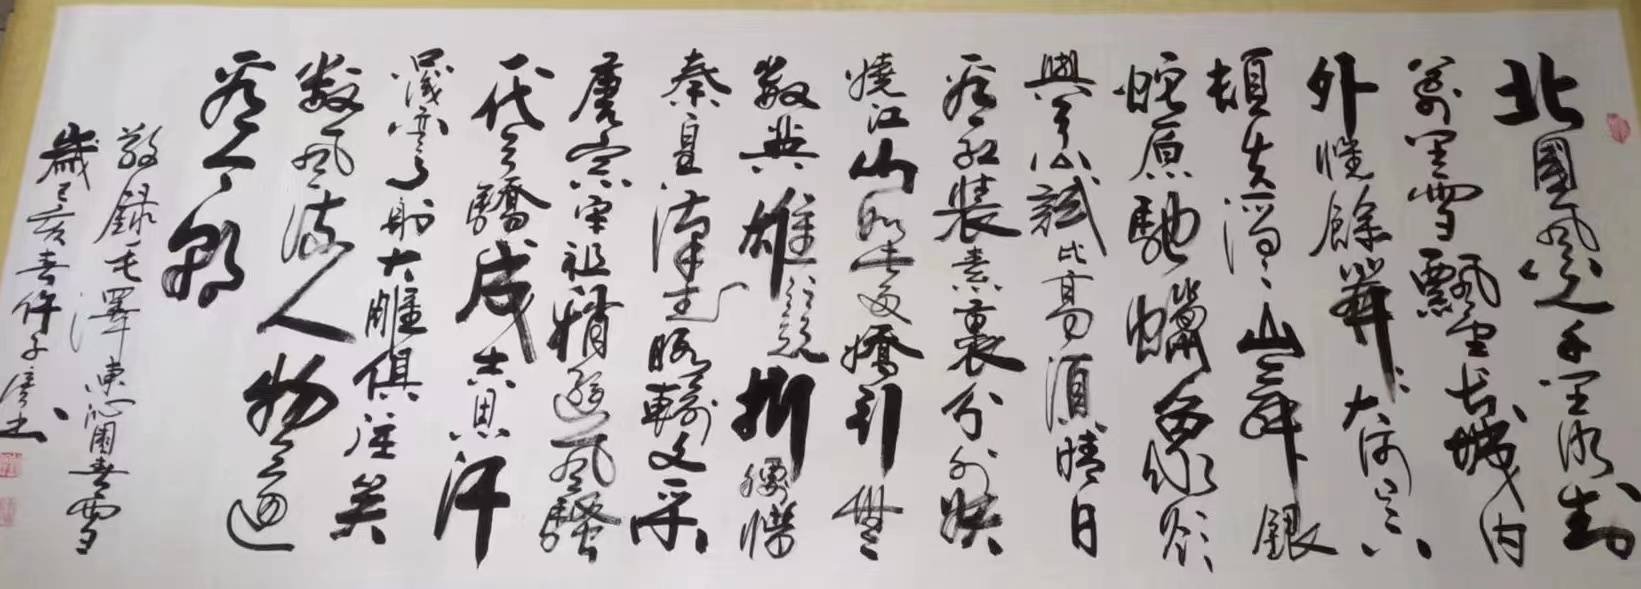 北國風光千里冰封
萬里雪飄望長城內
外惟餘莽莽大河上下
頓失滔滔山舞銀
蛇原馳蠟象欲
與天公試比高須晴日
看紅裝素裹分外妖
嬈江山如此多嬌引無
數英雄競折腰惜
秦皇漢武略輸文采
唐宗宋祖稍遜風騷
一代天驕成吉思汗
只識彎弓射大雕俱往矣
數風流人物還
看今朝
敬錄毛澤東沁園春雪
歲己亥春許子書